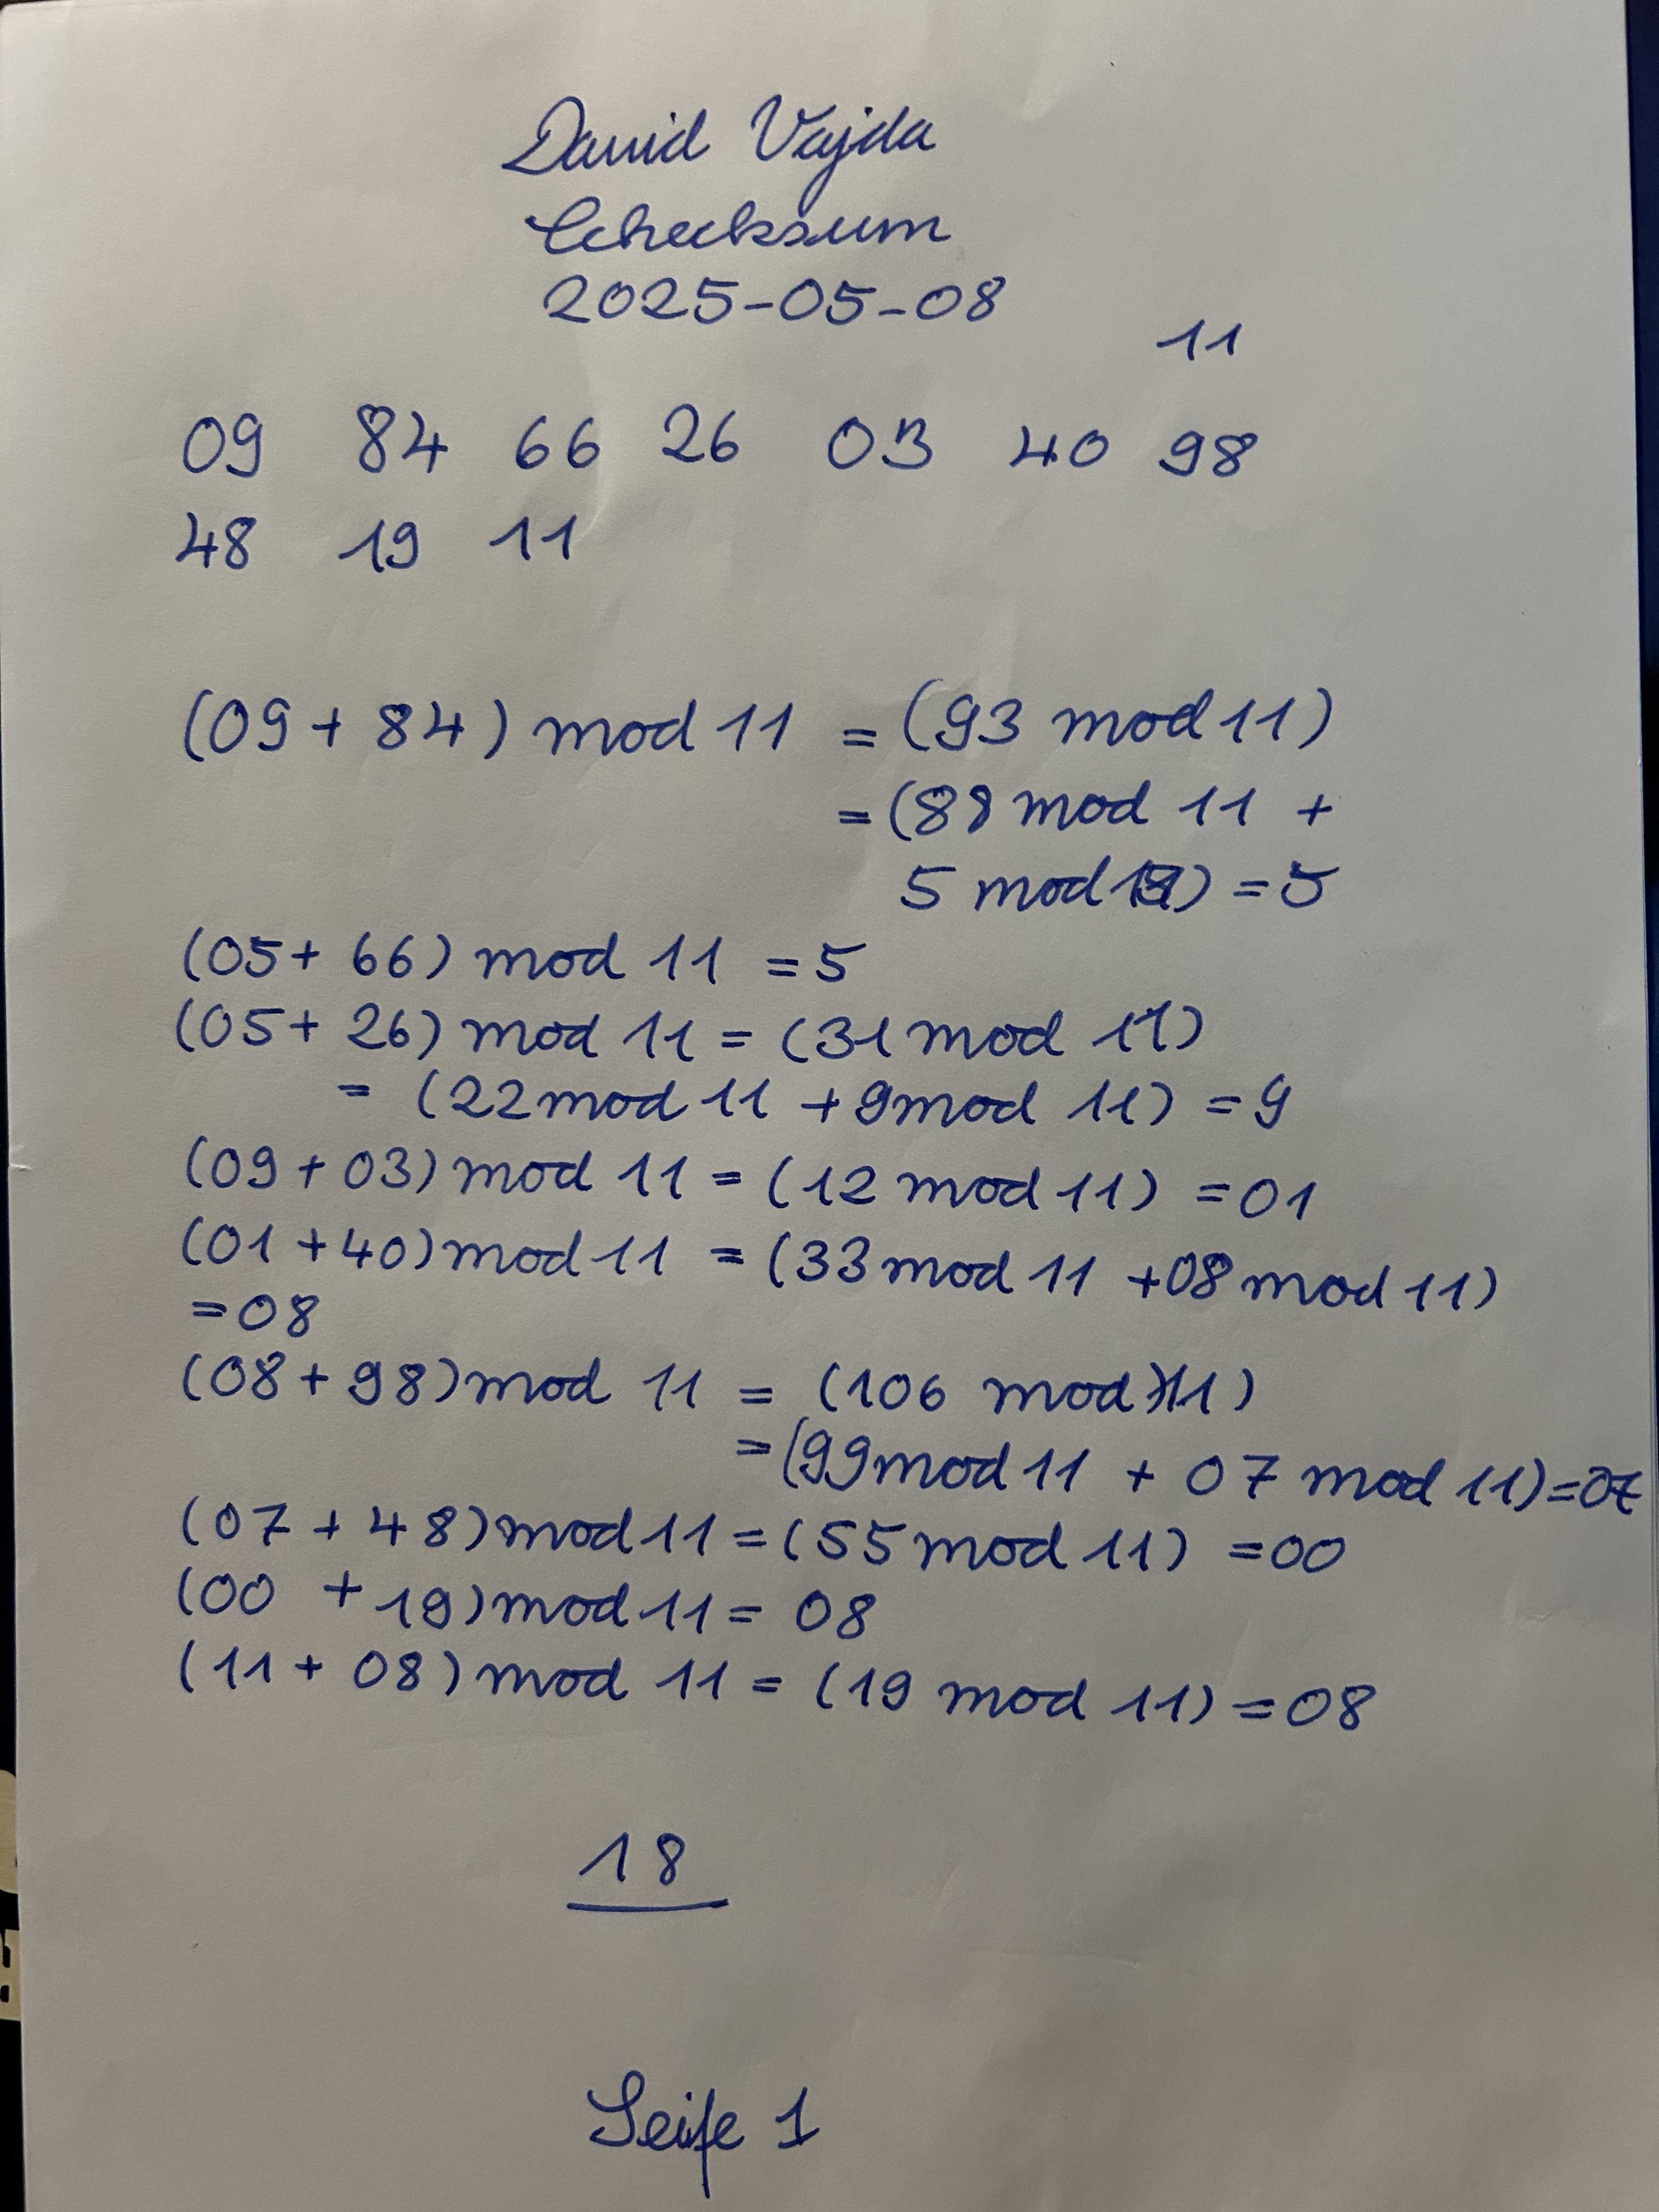 David Vajda
Checksum
2025-05-08
11
09 84 66 26 03 40 98
48 19 11
(09 + 84) mod 11 = (93 mod 11)
= (88 mod 11 +
5 mod 11) = 5
(05 + 66) mod 11 = 5
(05 + 26) mod 11 = (31 mod 11)
= (22 mod 11 + 9 mod 11) = 9
(09 + 03) mod 11 = (12 mod 11) = 01
(01 + 40) mod 11 = (33 mod 11 + 08 mod 11)
= 08
(08 + 98) mod 11 = (106 mod 11)
= (99 mod 11 + 07 mod 11) = 07
(07 + 48) mod 11 = (55 mod 11) = 00
(00 + 19) mod 11 = 08
(11 + 08) mod 11 = (19 mod 11) = 08
18
Seife 1